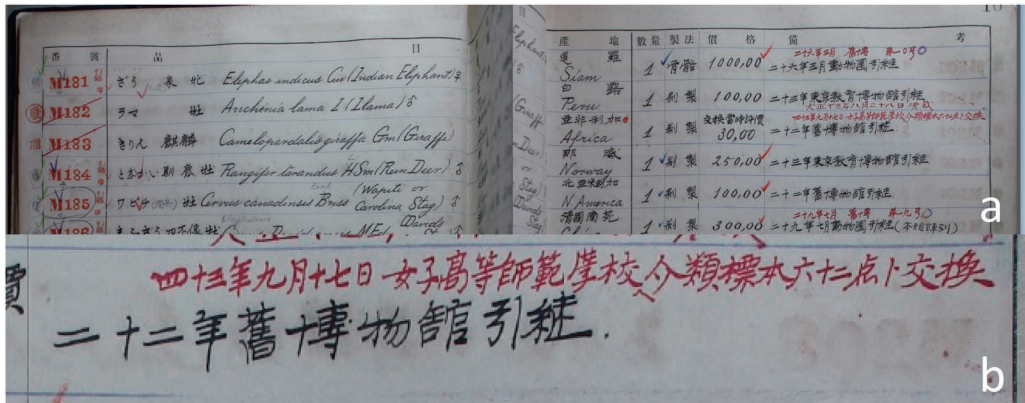 番 號 品 目
M181 ざう 象 牝 Elephas indicus Cuv (Indian Elephant) ♀
M182 ラマ 牡 Auchenia lama I (Ilama) ♂
M183 きりん 麒麟 Camelopardalis giraffa Gm (Giraffe)
M184 となかい 馴鹿 牡 Rangifer tarandus HSm (Rein Deer) ♂
M185 ワピチ 牡 Cervus canadensis (Wapiti or
Carolina Stag) ♂
M186
10
產 地 數量 製法 價 格 備 考
暹 羅
Siam 1 骨骼 1000,00 二十六年三月動物園引継
Peru 1 剝製 100,00 二十三年東京教育博物館引継
四十三年九月十七日女子高等師範學校介類標本六十二点ト交換
亞非利加 交換當時評價
Africa 1 剝製 30,00 二十二年舊博物館引継
那 威
Norway 1 剝製 250,00 二十三年東京教育博物館引継
北亞米利加
N. America 1 剝製 100,00 二十二年舊博物館引継
清國南苑
1 剝製 300,00 二十九年七月動物園引継
a
價
四十三年九月十七日女子高等師範學校介類標本六十二点ト交換
二十二年舊博物館引継.
b